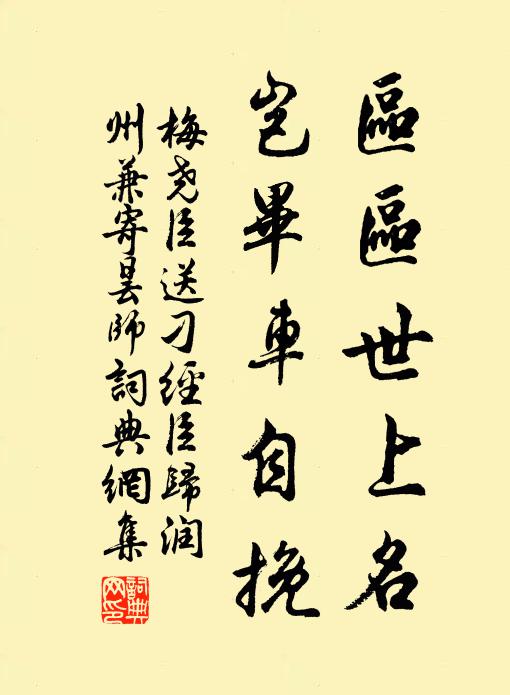 區區世上名
豈畢車自挽
梅堯臣送刁經臣歸润
州兼寄曇師詞典網集
詞典網印